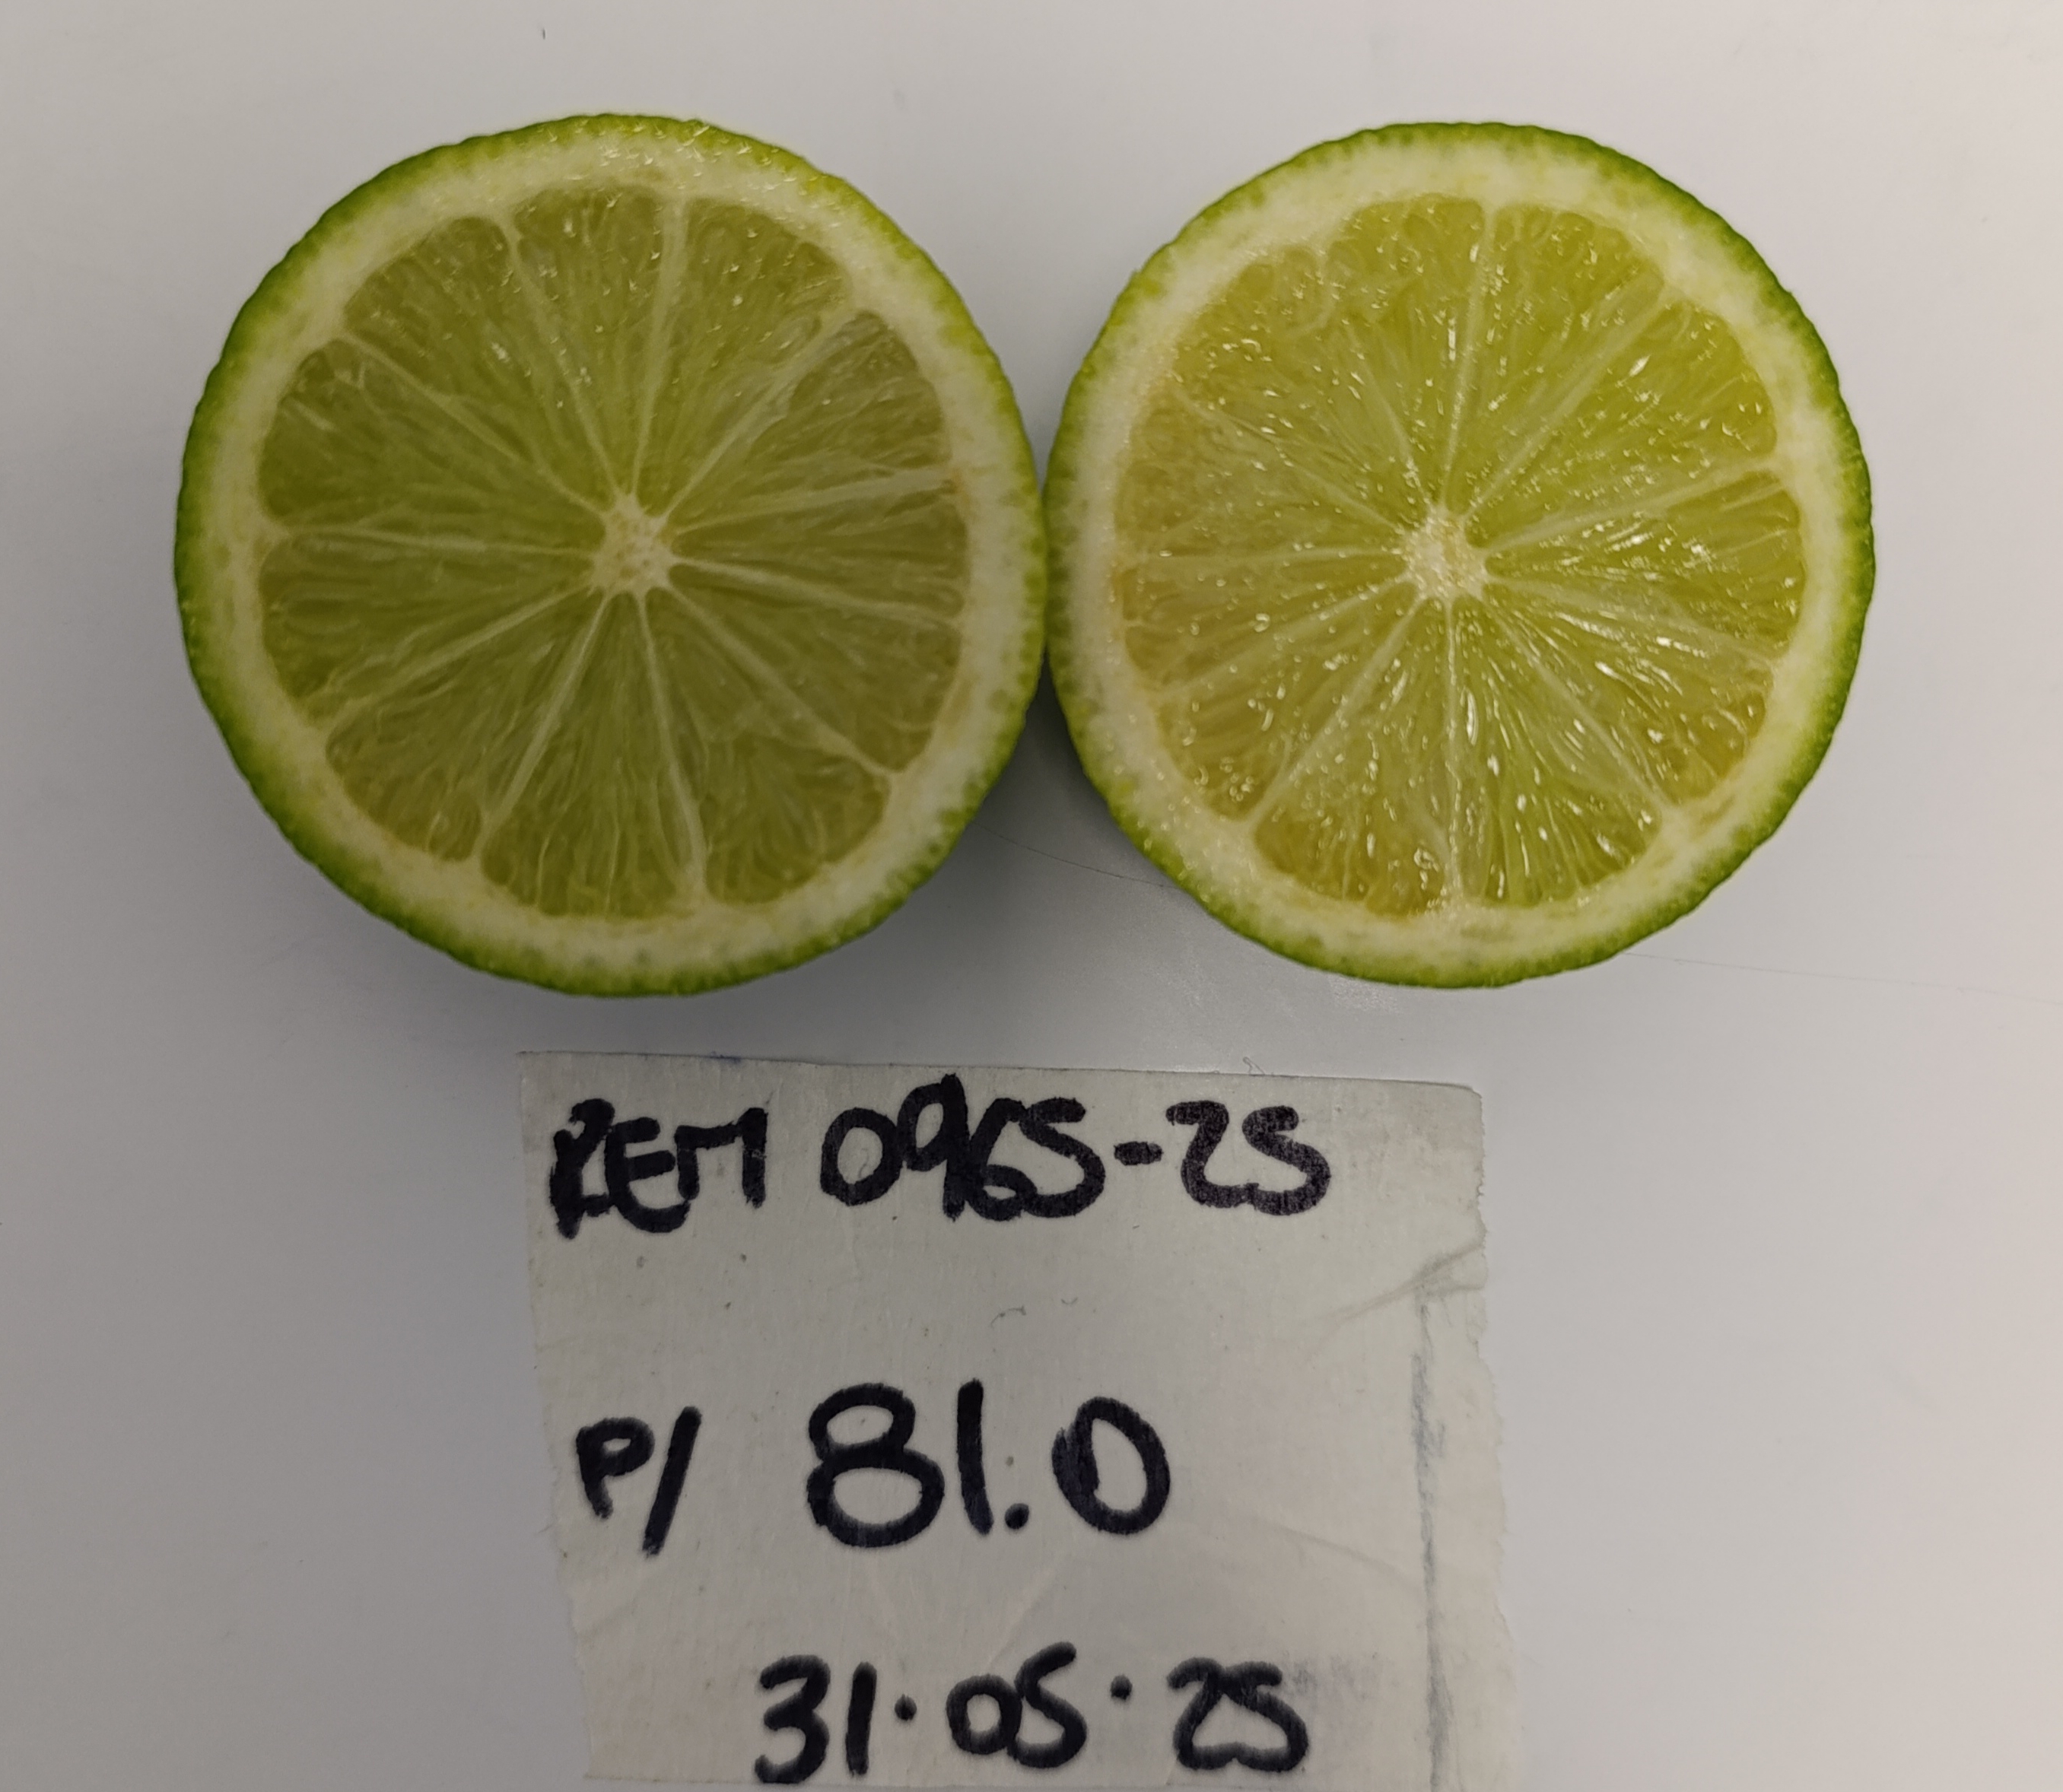 REM 0965-25
P/ 81.0
31.05.25